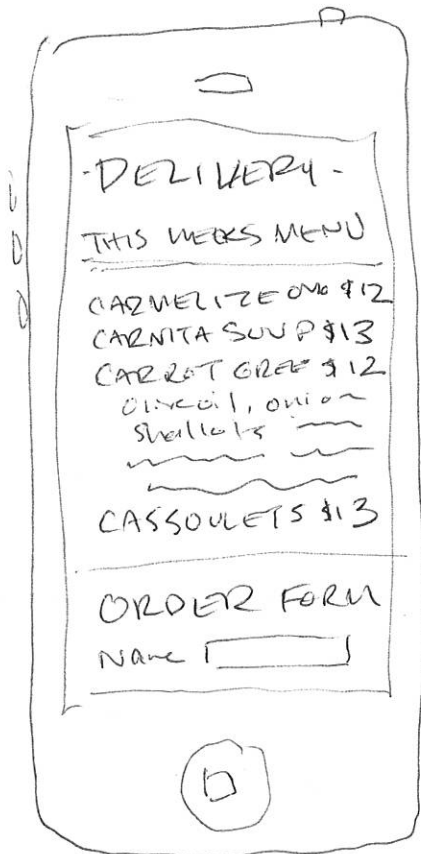 -DELIVERY-
THIS WEEKS MENU
CARMELIZE ONO $12
CARNITA SOUP $13
CARROT GREE $12
olive oil, onion
shallots
CASSOULETS $13
ORDER FORM
Name